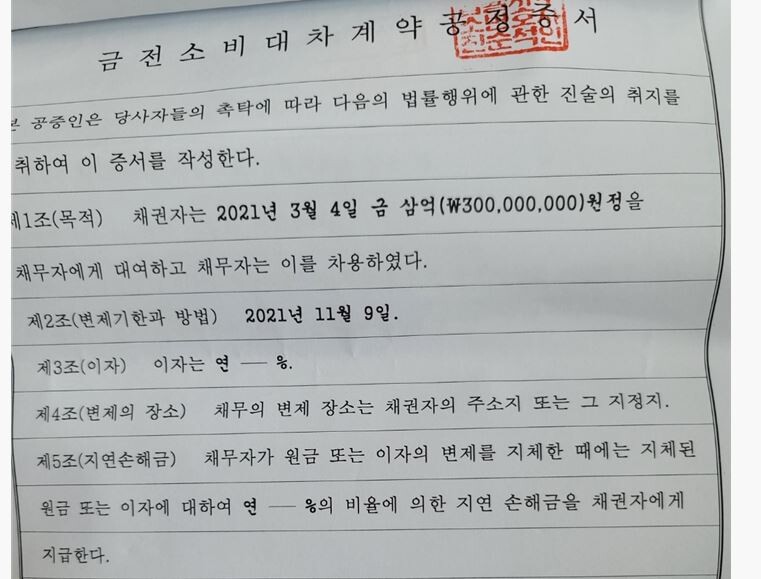 금 전 소 비 대 차 계 약 공 정 증 서
본 공증인은 당사자들의 촉탁에 따라 다음의 법률행위에 관한 진술의 취지를
취하여 이 증서를 작성한다.
제1조(목적) 채권자는 2021년 3월 4일 금 삼억(₩300,000,000)원정을
채무자에게 대여하고 채무자는 이를 차용하였다.
제2조(변제기한과 방법) 2021년 11월 9일.
제3조(이자) 이자는 연 — %.
제4조(변제의 장소) 채무의 변제 장소는 채권자의 주소지 또는 그 지정지.
제5조(지연손해금) 채무자가 원금 또는 이자의 변제를 지체한 때에는 지체된
원금 또는 이자에 대하여 연 — %의 비율에 의한 지연 손해금을 채권자에게
지급한다.